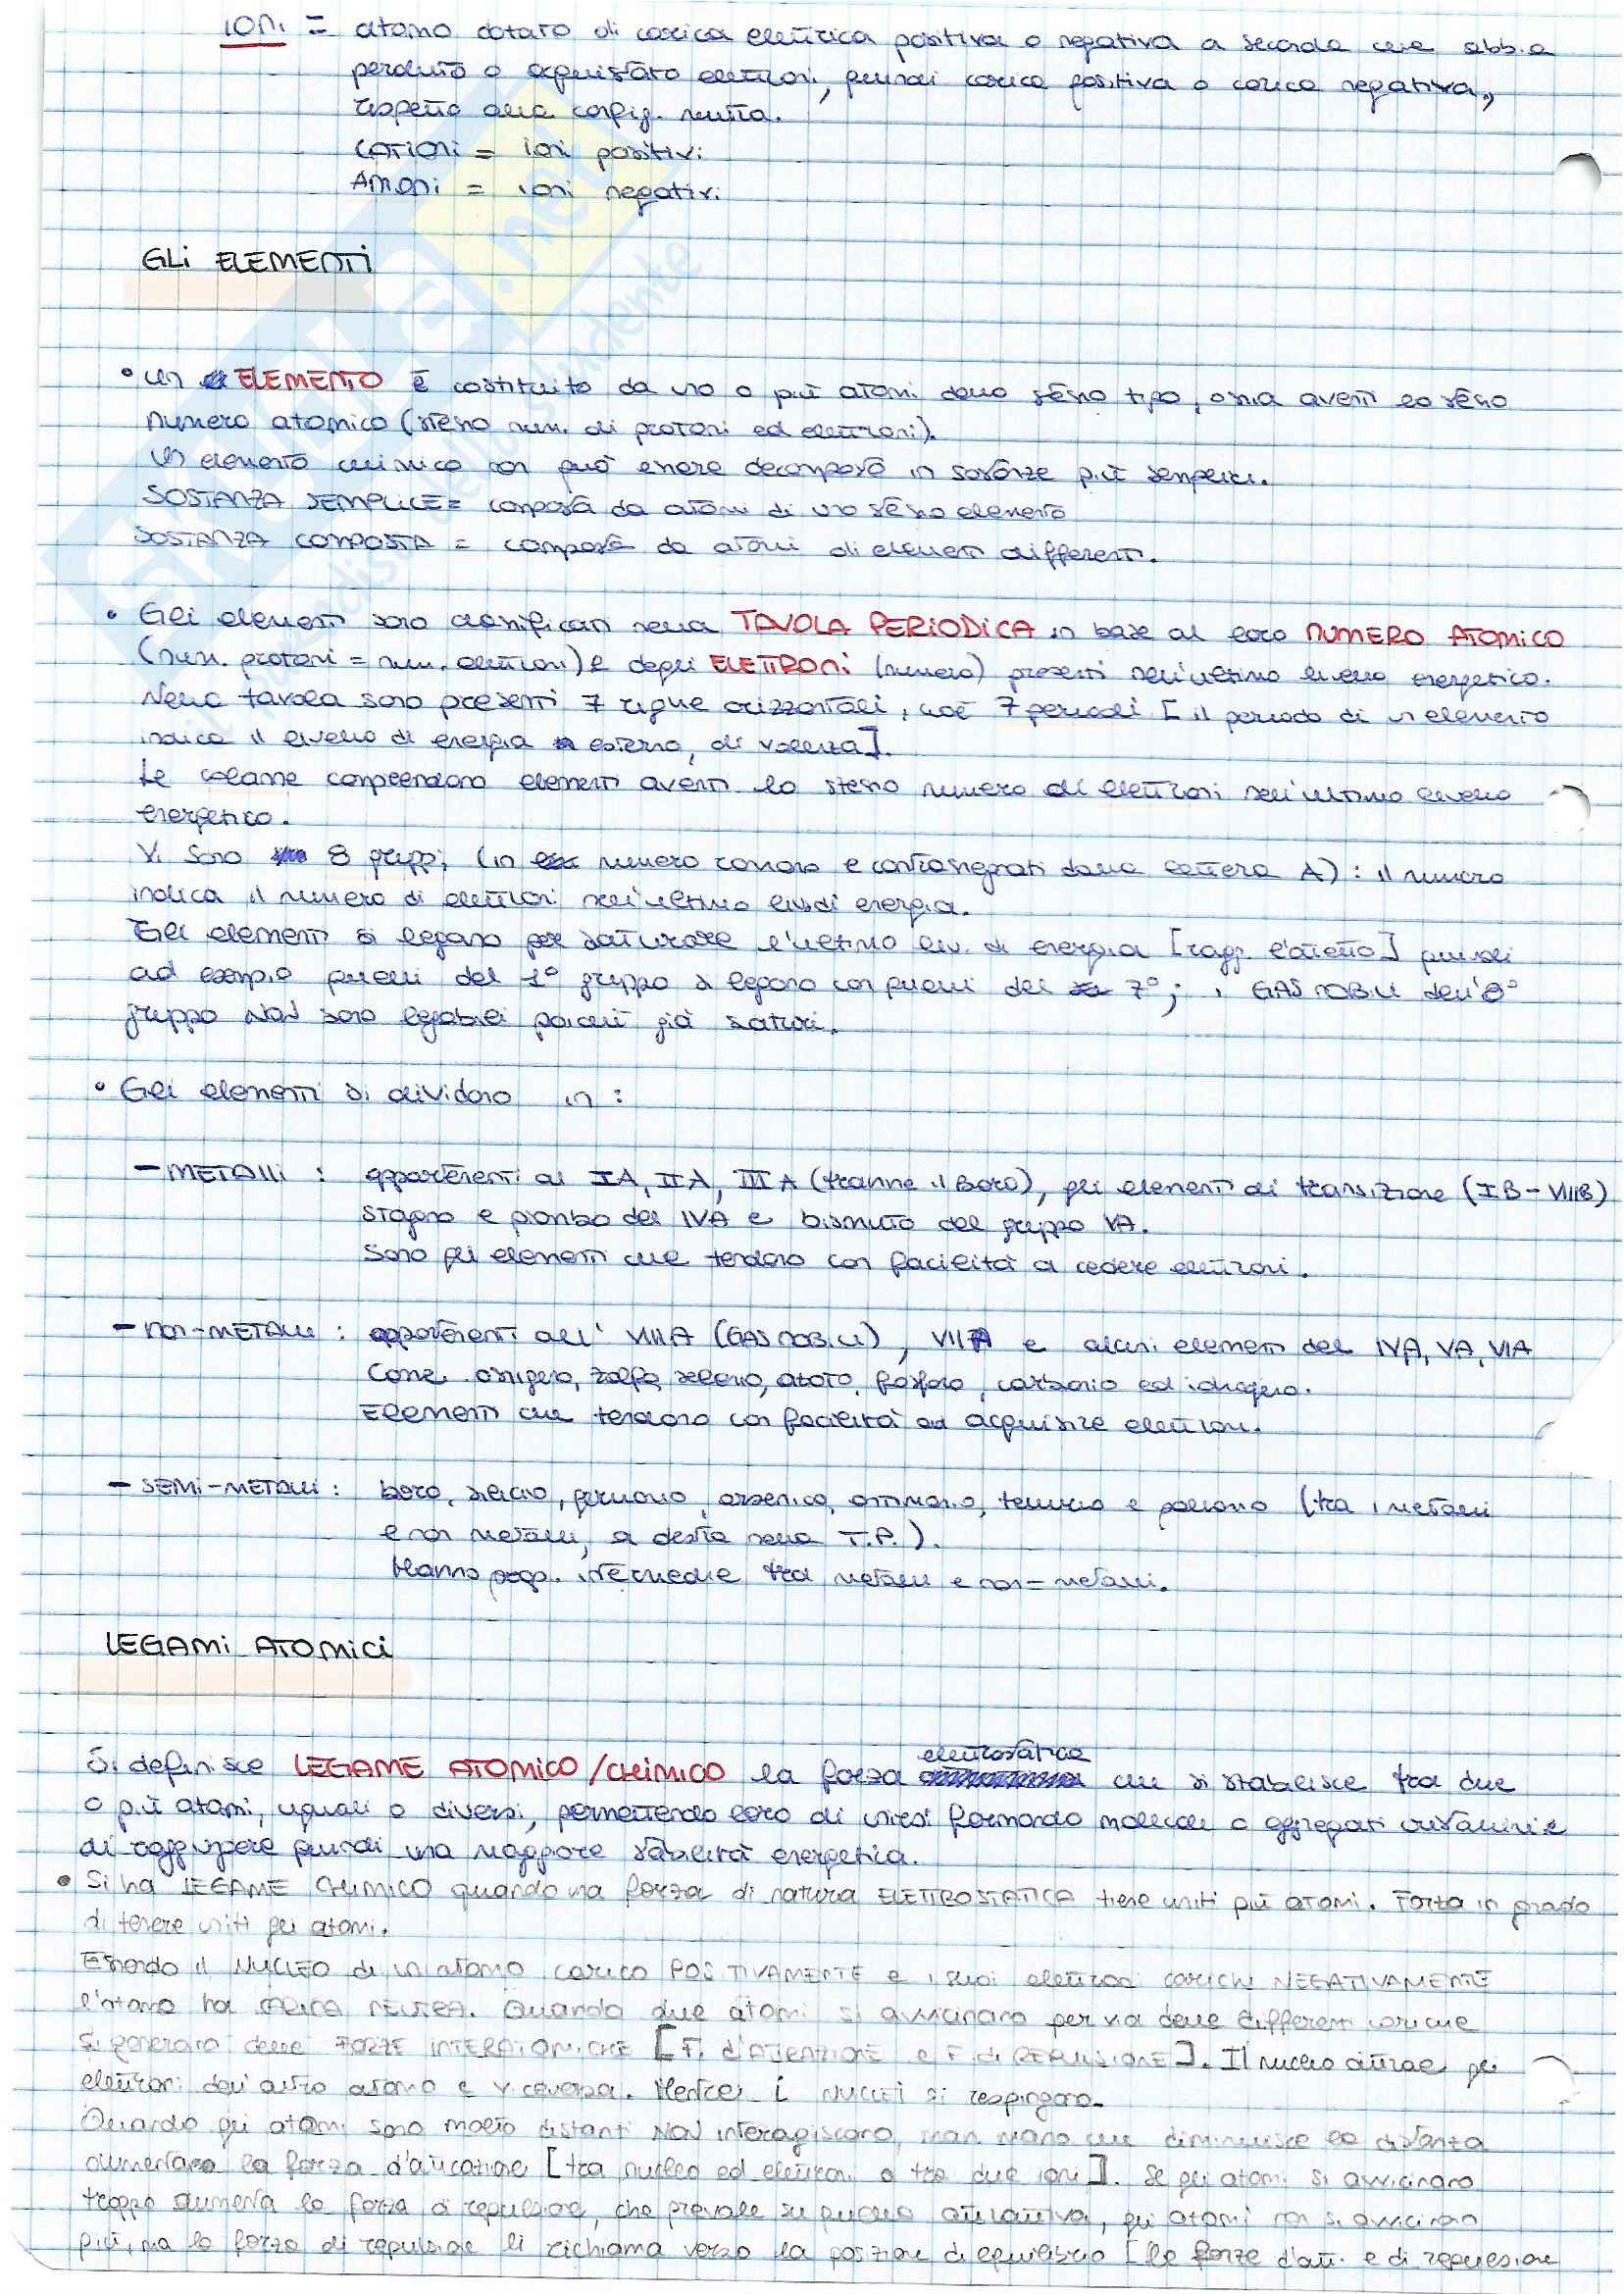 IONI = atomo dotato di carica elettrica positiva o negativa a seconda che abbia
perduto o acquistato elettroni, quindi carica positiva o carica negativa,
rispetto alla config. neutra.
CATIONI = ioni positivi
ANIONI = ioni negativi
GLI ELEMENTI
• Un ELEMENTO è costituito da uno o più atomi dello stesso tipo, ossia aventi lo stesso
numero atomico (stesso num. di protoni ed elettroni).
Un elemento chimico non può essere decomposto in sostanze più semplici.
SOSTANZA SEMPLICE = composta da atomi di uno stesso elemento
SOSTANZA COMPOSTA = composta da atomi di elementi differenti.
• Gli elementi sono classificati nella TAVOLA PERIODICA in base al loro NUMERO ATOMICO
(num. protoni = num. elettroni) e degli ELETTRONI (numero) presenti nell'ultimo livello energetico.
Nella tavola sono presenti 7 righe orizzontali, cioè 7 periodi [il periodo di un elemento
indica il livello di energia esterno, di valenza].
Le colonne comprendono elementi aventi lo stesso numero di elettroni nell'ultimo livello
energetico.
Vi sono 8 gruppi (in numero romano e contrassegnati dalla lettera A): il numero
indica il numero di elettroni nell'ultimo liv. di energia.
Gli elementi si legano per saturare l'ultimo liv. di energia [ragg. l'ottetto] quindi
ad esempio quelli del 1° gruppo si legano con quelli del 7°; i GAS NOBILI dell'8°
gruppo NON sono legabili poiché già saturi.
• Gli elementi si dividono in:
- METALLI: appartenenti al IA, IIA, IIIA (tranne il Boro), gli elementi di transizione (IB-VIIIB)
stagno e piombo del IVA e bismuto del gruppo VA.
Sono gli elementi che tendono con facilità a cedere elettroni.
- NON-METALLI: appartenenti all' VIIIA (GAS NOBILI), VIIA e alcuni elementi del IVA, VA, VIA
come ossigeno, zolfo, selenio, azoto, fosforo, carbonio ed idrogeno.
Elementi che tendono con facilità ad acquisire elettroni.
- SEMI-METALLI: boro, silicio, germanio, arsenico, antimonio, tellurio e polonio (tra i metalli
e non metalli, a destra nella T.P.).
Hanno prop. intermedie tra metalli e non-metalli.
LEGAMI ATOMICI
Si definisce LEGAME ATOMICO/CHIMICO la forza elettrostatica che si stabilisce tra due
o più atomi, uguali o diversi, permettendo loro di unirsi formando molecole o aggregati cristallini e
di raggiungere quindi una maggiore stabilità energetica.
• Si ha LEGAME CHIMICO quando una forza di natura ELETTROSTATICA tiene uniti più atomi. Forza in grado
di tenere uniti gli atomi.
Essendo il NUCLEO di un atomo carico POSITIVAMENTE e i suoi elettroni carichi NEGATIVAMENTE
l'atomo ha CARICA NEUTRA. Quando due atomi si avvicinano per via delle differenti cariche
si generano delle FORZE INTERATOMICHE [F. d'ATTRAZIONE e F. di REPULSIONE]. Il nucleo attrae gli
elettroni dell'altro atomo e viceversa. Mentre i NUCLEI si respingono.
Quando gli atomi sono molto distanti NON interagiscono, man mano che diminuisce la distanza
aumentano la forza d'attrazione [tra nucleo ed elettroni o tra due ioni]. Se gli atomi si avvicinano
troppo aumenta la forza di repulsione, che prevale su quella attrattiva, gli atomi non si avvicinano
più, ma la forza di repulsione li richiama verso la posizione di equilibrio [le forze d'att. e di repulsione